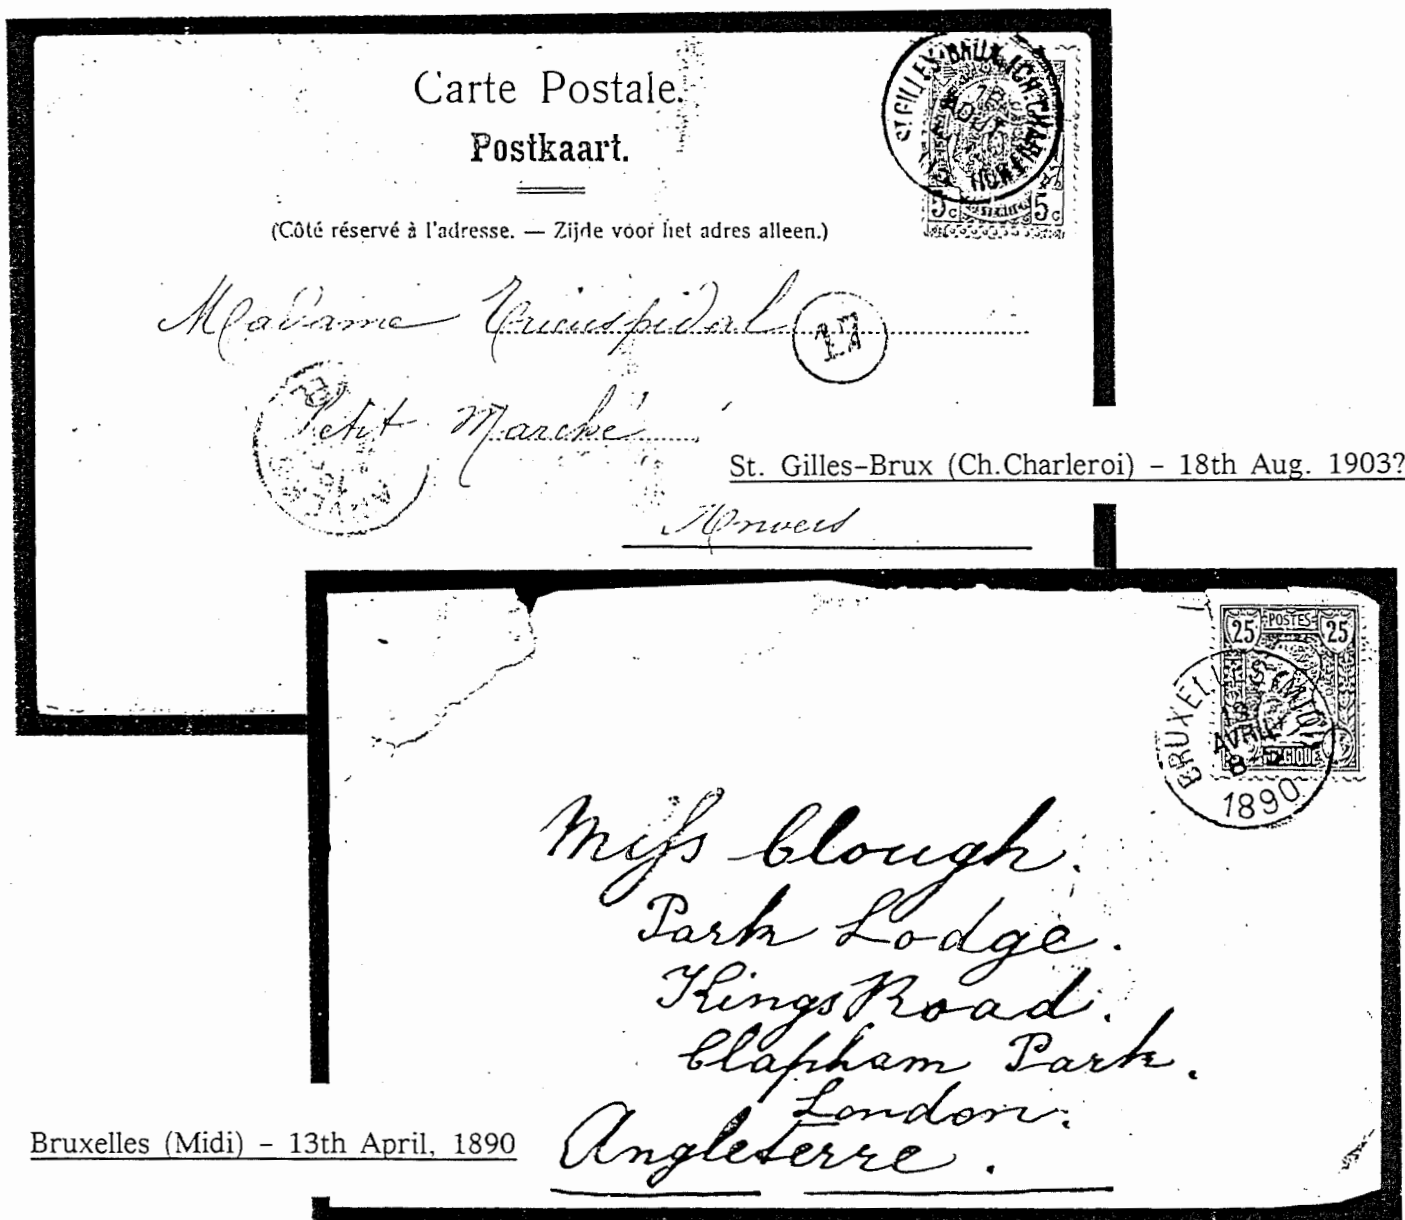 Carte Postale.
Postkaart.
(Côté réservé à l'adresse. — Zijde voor het adres alleen.)
ST GILLES-BRUX
18
AOUT
5c 5c
Madame
17
Petit Marché
ANVERS
Anvers
St. Gilles-Brux (Ch.Charleroi) - 18th Aug. 1903?
25 POSTES 25
BRUXELLES (MIDI)
13
AVRIL
8-
1890
BELGIQUE
Miss Clough.
Park Lodge.
Kings Road.
Clapham Park.
London.
Angleterre.
Bruxelles (Midi) - 13th April, 1890